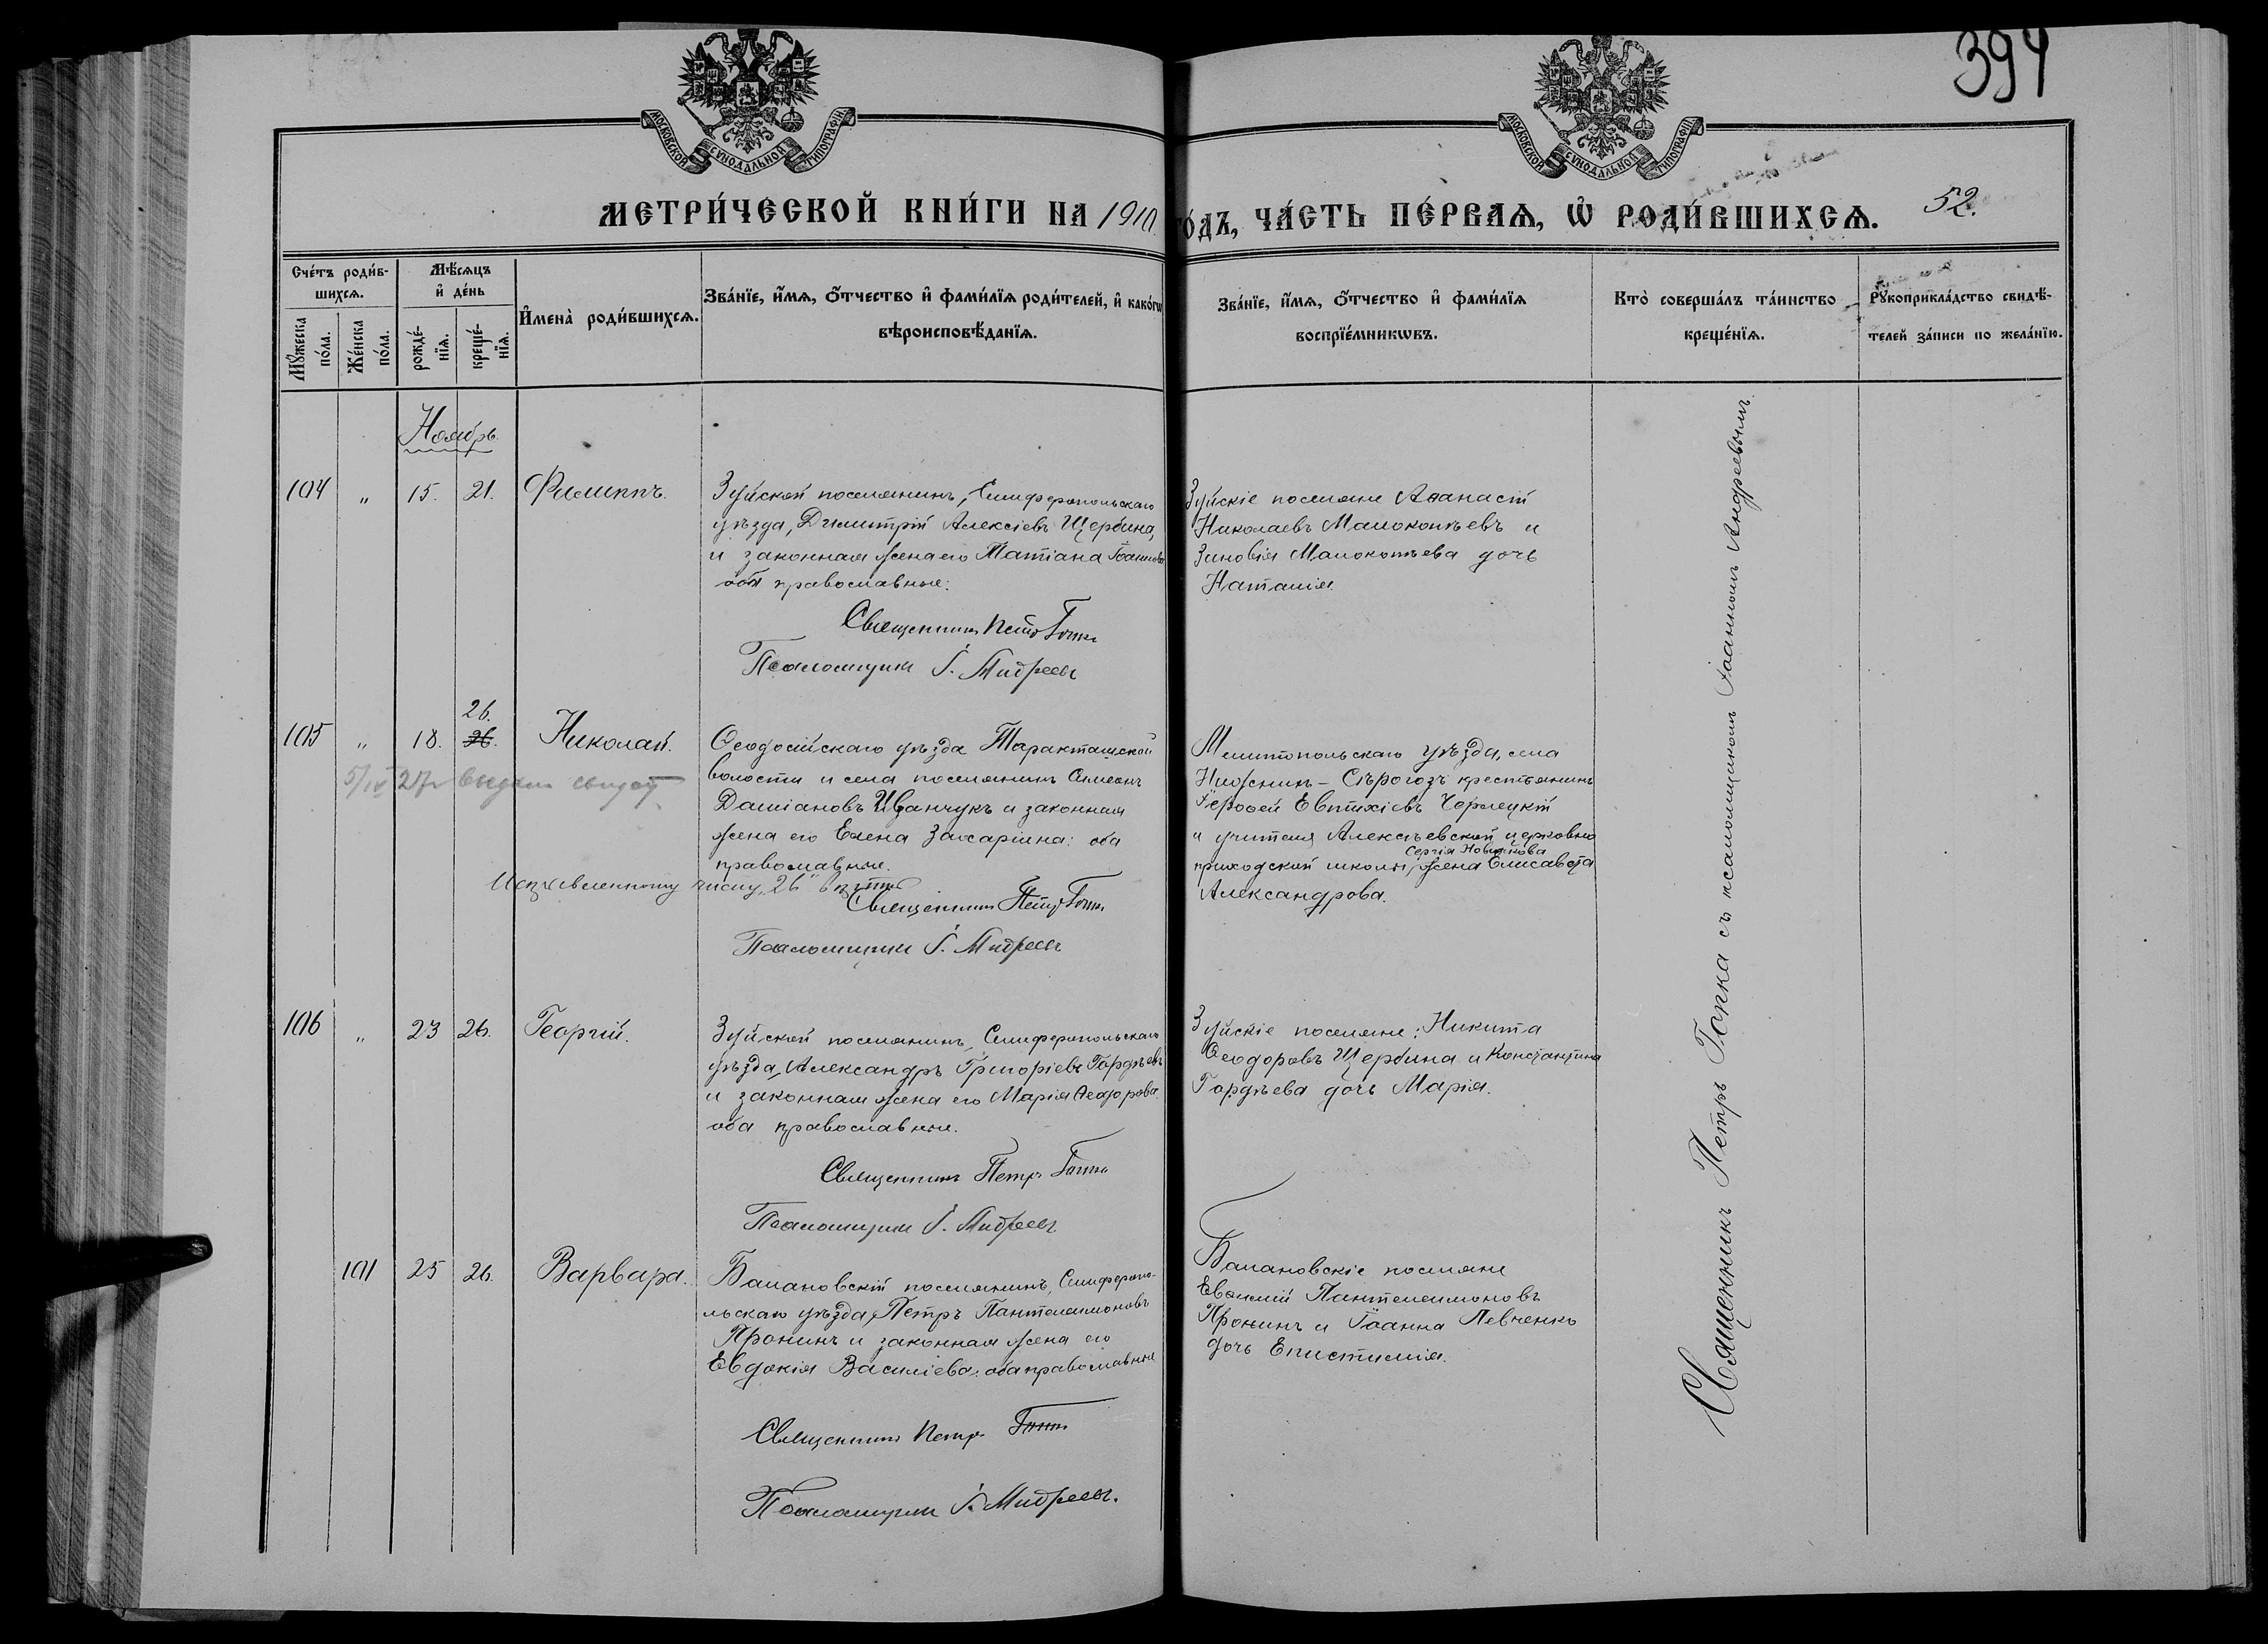 394
МОСКОВСКОЙ СѴНОДАЛЬНОЙ ТИПОГРАФІИ
МОСКОВСКОЙ СѴНОДАЛЬНОЙ ТИПОГРАФІИ
МЕТРИ́ЧЕСКОЙ КНИ́ГИ НА 1910 ГО́ДЪ, ЧА́СТЬ ПЕ́РВАѦ, Ѡ҆ РОДИ́ВШИХСѦ. 52.
Сче́тъ роди́в-
шихсѧ.
Мꙋ́жеска по́ла.
Же́нска по́ла.
Мѣ́сѧцъ
и҆ де́нь
рожде́-
нїѧ.
креще́-
нїѧ.
И҆мена̀ роди́вшихсѧ.
Зва́нїе, и҆́мѧ, ѻ҆́тчество и҆ фами́лїѧ роди́телей, и҆ како́гѡ
вѣроисповѣ́данїѧ.
Зва́нїе, и҆́мѧ, ѻ҆́тчество и҆ фами́лїѧ
воспрїе́мникѡвъ.
Кто̀ соверша́лъ та́инство
креще́нїѧ.
Рꙋкоприкла́дство свидѣ́-
телей за́писи по жела́нїю.
Ноябрь.
104 " 15. 21. Филиппъ.
Зуйской поселянинъ, Симферопольскаго
уѣзда, Димитрій Алексіевъ Щербина,
и законная жена его Татіана Іоаннова
оба православные.
Священникъ Петръ Гопка
Псаломщикъ І. Андреевъ
Зуйскіе поселяне Аѳанасій
Николаевъ Малокопѣевъ и
Зиновія Малокотьева дочь
Наталія.
105 " 18. 26. 26. Николай.
5/IV 27 г выдан свидет
Ѳеодосійскаго уѣзда Таракташской
волости и села поселянинъ Симеонъ
Даміановъ Иванчукъ и законная
жена его Елена Захаріина: оба
православные.
Исправленному числу "26" вѣрить
Священникъ Петръ Гопка
Псаломщикъ І. Андреевъ
Мелитопольскаго уѣзда, села
Нижнихъ-Сѣрогозъ крестьянинъ
Іероѳей Евтихіевъ Чернецкій
и учителя Алексѣевской церковно
приходской школы, Сергія Новикова жена Елисавета
Александрова.
106 " 23 26. Георгій.
Зуйской поселянинъ, Симферопольскаго
уѣзда, Александръ Григоріевъ Гордѣевъ
и законная жена его Марія Ѳеодорова
оба православные.
Священникъ Петръ Гопка
Псаломщикъ І. Андреевъ
Зуйскіе поселяне: Никита
Ѳеодоровъ Щербина и Константина
Гордѣева дочь Марія.
101 25 26. Варвара.
Балановскій поселянинъ, Симферопо-
льскаго уѣзда, Петръ Пантелеимоновъ
Пронинъ и законная жена его
Евдокія Василіева: оба православные
Священникъ Петръ Гопка
Псаломщикъ І. Андреевъ.
Балановскіе поселяне
Евѳимій Пантелеимоновъ
Пронинъ и Іоанна Левченко
дочь Епистимія.
Священникъ Петръ Гопка съ псаломщикомъ Іоанномъ Андреевымъ.